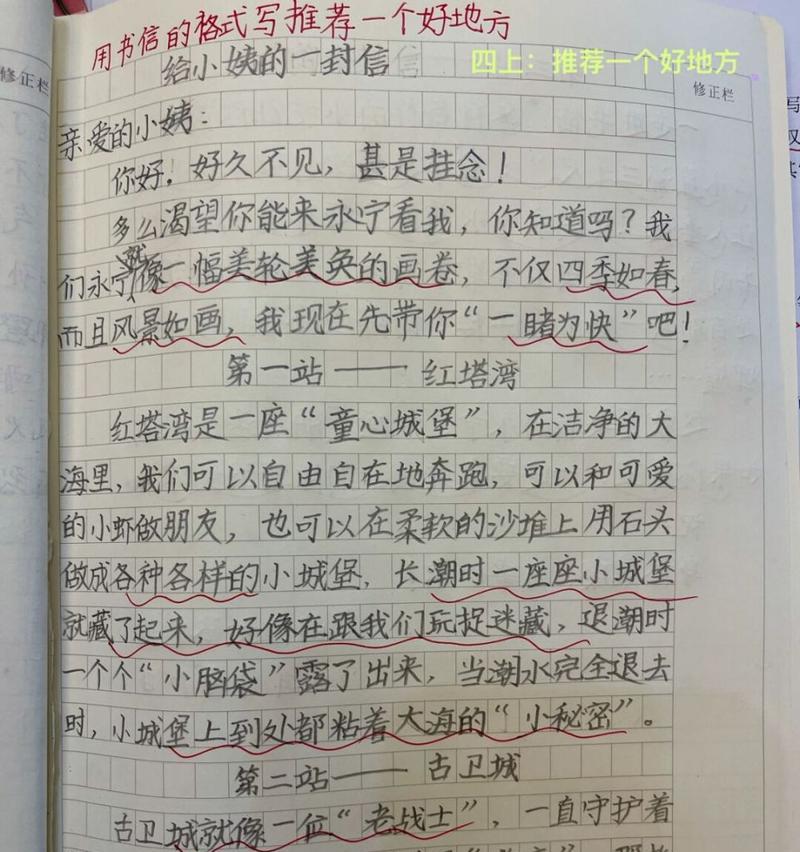 用书信的格式写推荐一个好地方
给小姨的一封信
四上：推荐一个好地方
修正栏
修正栏
亲爱的小姨：
你好，好久不见，甚是挂念！
多么渴望你能来永宁看我，你知道吗？我
们永宁就像一幅美轮美奂的画卷，不仅四季如春，
而且风景如画，我现在先带你“一睹为快”吧！
第一站——红塔湾
红塔湾是一座“童心城堡”，在洁净的大
海里，我们可以自由自在地奔跑，可以和可爱
的小虾做朋友，也可以在柔软的沙堆上用石头
做成各种各样的小城堡，长潮时一座座小城堡
就藏了起来，好像在跟我们玩捉迷藏，退潮时
一个个“小脑袋”露了出来，当潮水完全退去
时，小城堡上到处都粘着大海的“小秘密”。
第二站——古卫城
古卫城就像一位“老战士”，一直守护着